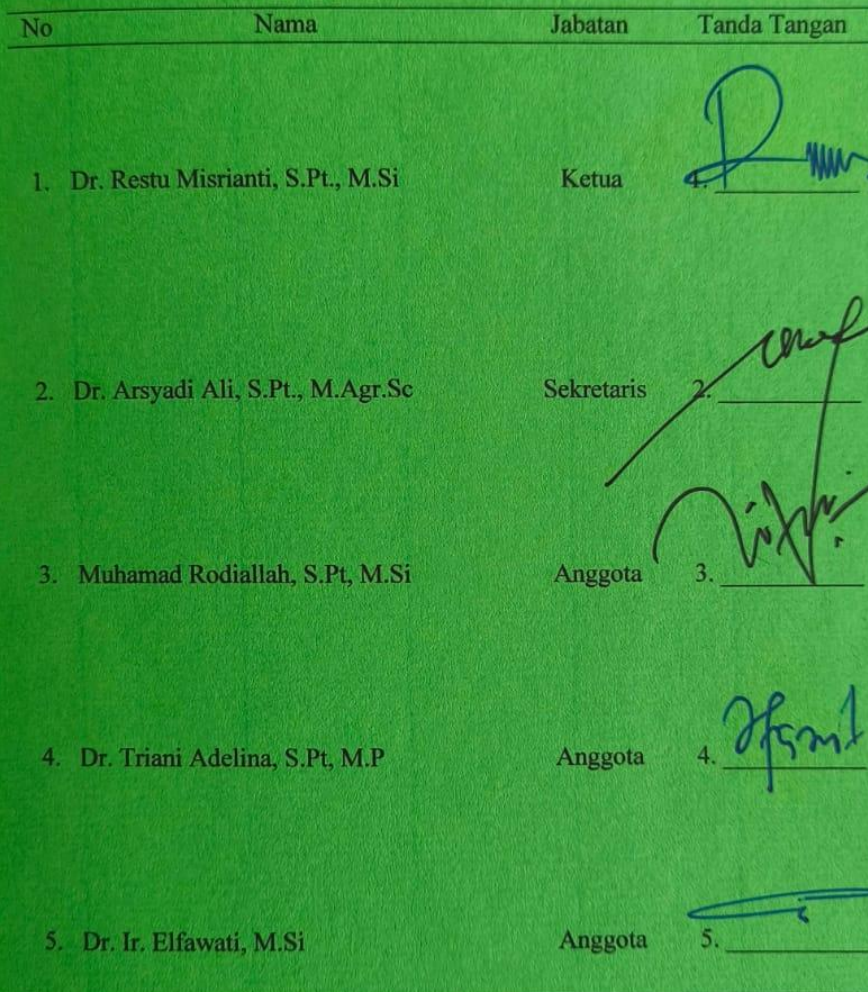 No Nama Jabatan Tanda Tangan
1. Dr. Restu Misrianti, S.Pt., M.Si Ketua 1.
2. Dr. Arsyadi Ali, S.Pt., M.Agr.Sc Sekretaris 2.
3. Muhamad Rodiallah, S.Pt, M.Si Anggota 3.
4. Dr. Triani Adelina, S.Pt, M.P Anggota 4.
5. Dr. Ir. Elfawati, M.Si Anggota 5.